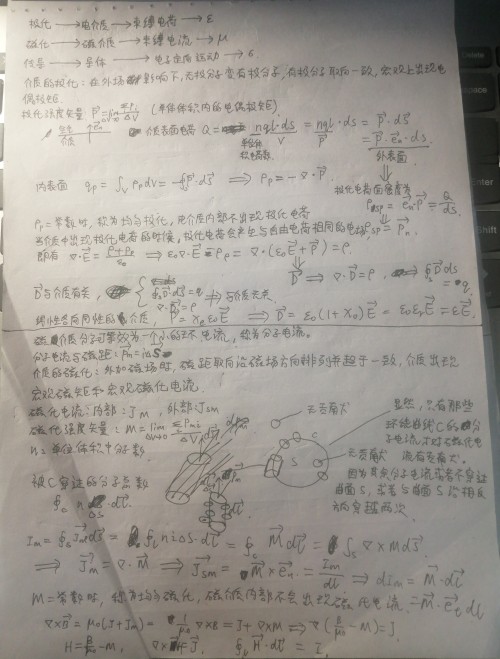 极化 → 电介质 → 束缚电荷 → ε
磁化 → 磁介质 → 束缚电流 → μ
传导 → 导体 → 电子定向运动 → σ
介质的极化：在外场影响下，无极分子变有极分子，有极分子取向一致，宏观上出现电
偶极矩．
极化强度矢量 P = lim ΣPi / ΔV （单位体积内的电偶极矩）．
介质表面电荷 Q = nql·ds = nql·ds = P·ds
= P·en·ds
外表面
内表面 qp = ∫v ρp dv = -∮P·ds ⟹ ρp = -∇·P
极化电荷面密度
ρsp = en·P = Q/ds
P=常数时，称为均匀极化，介质内部不出现极化电荷
当介质中出现极化电荷的时候，极化电荷会产生与自由电荷相同的电场 ρsp = Pn
即有 ∇·E = (ρ+ρp)/ε0 ⟹ ε0∇·E - ρp = ∇·(ε0E+P) = ρ.
D ⟹ ∇·D = ρ , ∮D ds = q
D与介质有关， { ∮D·ds = q ∇·D = ρ 与介质无关
线性各向同性的介质，P = Xe ε0 E ⟹ D = ε0(1+Xe)E = ε0εrE = εE
磁介质分子可等效为一个小的环电流，称为分子电流．
分子电流与磁矩：Pm = iΔS
介质的磁化：外加磁场时，磁距取向沿磁场方向排列并趋于一致，介质出现
宏观磁矩和宏观磁化电流．
磁化电流：内部：Jm，外部：Jsm
磁化强度矢量：M = lim Δv→0 ΣPmi / ΔV
n：单位体积中分子数
无贡献
C
S
显然，只有那些
环绕曲线C的分
子电流，才对磁化电
流有贡献．
因为其余分子电流或者不穿过
曲面S，或者与曲面S沿相反
方向穿越两次．
被C穿过的分子总数
∮c n ΔS·dl
Im = ∮s Jm ds = ∮c niΔS·dl = ∮c M dl = ∫s ∇×M ds.
⟹ Jm = ∇·M ⟹ Jsm = M×en = Im/dl ⟹ dIm = M·dl
= M·et dl
M=常数时，称为均匀磁化，磁介质内部不会出现磁化电流．
∇×B = μ0(J+Jm) = 1/μ0 ∇×B = J+∇×M ⟹ ∇(B/μ0 - M) = J.
H = B/μ0 - M, ∇×H = J. ∮c H·dl = I